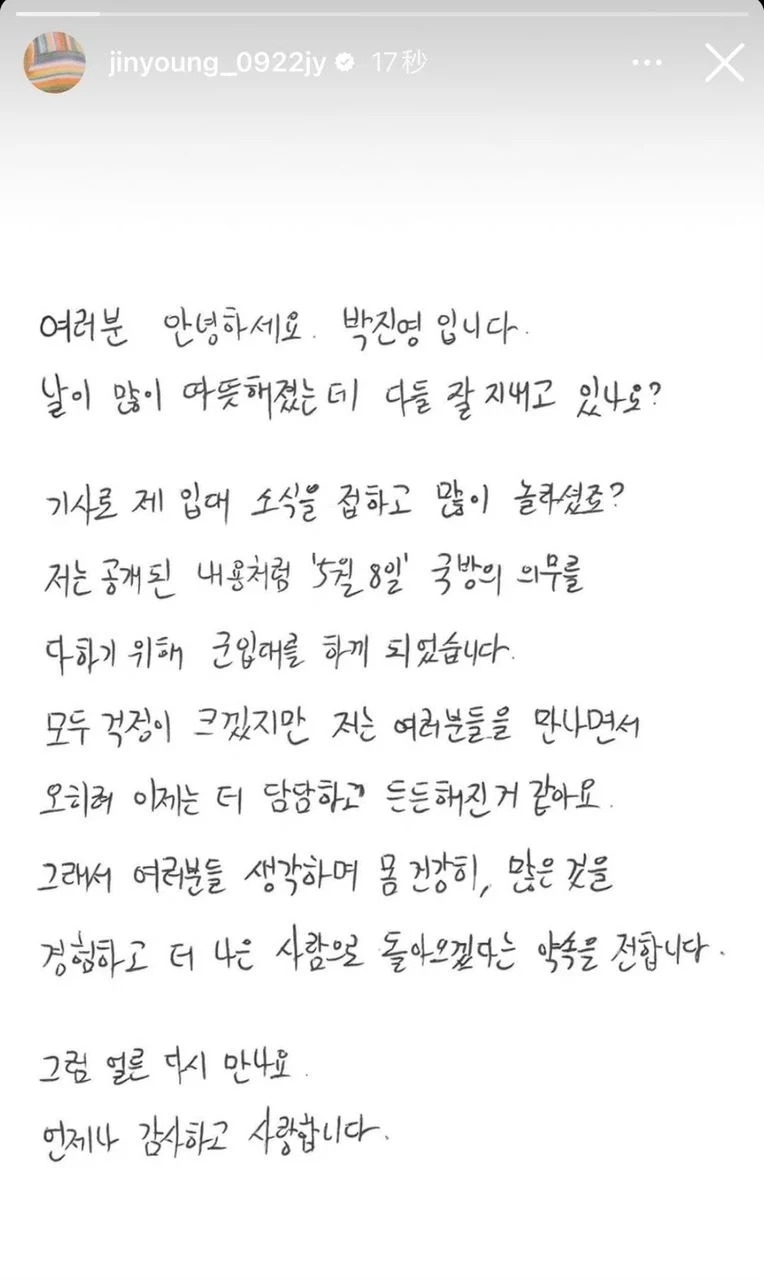 jinyoung_0922jy 17秒
여러분 안녕하세요. 박진영입니다.
날이 많이 따뜻해졌는데 다들 잘 지내고 있나요?
기사로 제 입대 소식을 접하고 많이 놀라셨죠?
저는 공개된 내용처럼 '5월 8일' 국방의 의무를
다하기 위해 군입대를 하게 되었습니다.
모두 걱정이 크겠지만 저는 여러분들을 만나면서
오히려 이제는 더 담담하고 든든해진거 같아요.
그래서 여러분들 생각하며 몸 건강히, 많은 것을
경험하고 더 나은 사람으로 돌아오겠다는 약속을 전합니다.
그럼 얼른 다시 만나요.
언제나 감사하고 사랑합니다.